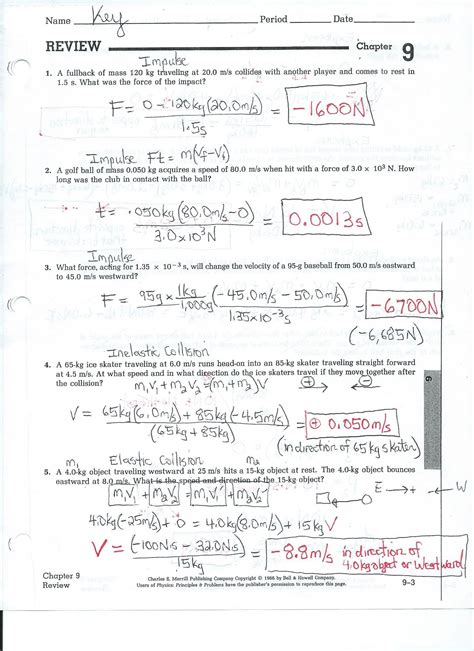 Name Key Period Date
REVIEW Chapter 9
Impulse
1. A fullback of mass 120 kg traveling at 20.0 m/s collides with another player and comes to rest in
1.5 s. What was the force of the impact?
F = 0 - 120kg(20.0m/s) / 1.5s = -1600N
Impulse Ft = m(Vf-Vi)
2. A golf ball of mass 0.050 kg acquires a speed of 80.0 m/s when hit with a force of 3.0 × 10³ N. How
long was the club in contact with the ball?
t = .050kg(80.0m/s-0) / 3.0x10³N = 0.0013s
Impulse
3. What force, acting for 1.35 × 10⁻³ s, will change the velocity of a 95-g baseball from 50.0 m/s eastward
to 45.0 m/s westward?
F = 95g x 1kg/1,000g (-45.0m/s - 50.0m/s) / 1.35x10⁻³s = -6700N
(-6,685N)
Inelastic Collision
4. A 65-kg ice skater traveling at 6.0 m/s runs head-on into an 85-kg skater traveling straight forward
at 4.5 m/s. At what speed and in what direction do the ice skaters travel if they move together after
the collision? m₁V₁ + m₂V₂ = (m₁+m₂)V
V = 65kg(6.0m/s) + 85kg(-4.5m/s) / (65kg + 85kg) = + 0.050m/s
(in direction of 65kg skater)
m₁ Elastic Collision m₂
5. A 4.0-kg object traveling westward at 25 m/s hits a 15-kg object at rest. The 4.0-kg object bounces
eastward at 8.0 m/s. What is the speed and direction of the 15-kg object?
m₁V₁ + m₂V₂ = m₁V₁' + m₂V₂' E → + ← W
4.0kg(-25m/s) + 0 = 4.0kg(8.0m/s) + 15kg V
V = (-100N·s - 32.0N·s) / 15kg = -8.8m/s in direction of
4.0kg object or Westward
Chapter 9
Review
Charles E. Merrill Publishing Company Copyright © 1986 by Bell & Howell Company.
Users of Physics: Principles & Problems have the publisher's permission to reproduce this page.
9–3
9